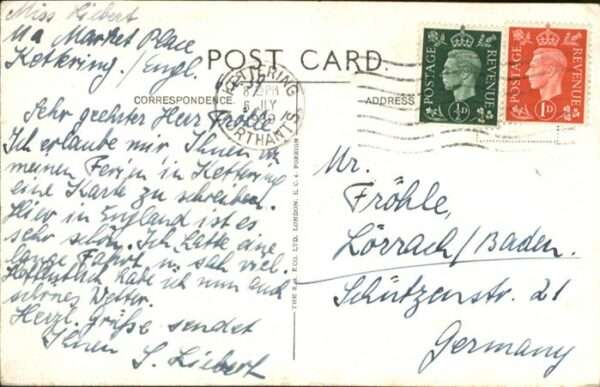 Miss Liebert
11a Market Place
Kettering. / Engl.
POST CARD.
CORRESPONDENCE.
ADDRESS
KETTERING
NORTHANTS
POSTAGE REVENUE
½D
POSTAGE REVENUE
1D
Sehr geehrter Herr Fröhle,
Ich erlaube mir, Ihnen in
meinen Ferien in Kettering
eine Karte zu schreiben.
Hier in England ist es
sehr schön. Ich hatte eine
lange Fahrt u. sah viel.
Hoffentlich habe ich nun auch
schönes Wetter.
Herzl. Grüße sendet
Ihnen S. Liebert
Mr.
Fröhle,
Lörrach/Baden.
Schützenstr. 21
Germany